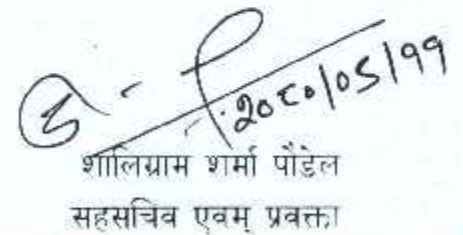 २०८०/०८/११
शालिग्राम शर्मा पौडेल
सहसचिव एवम् प्रवक्ता